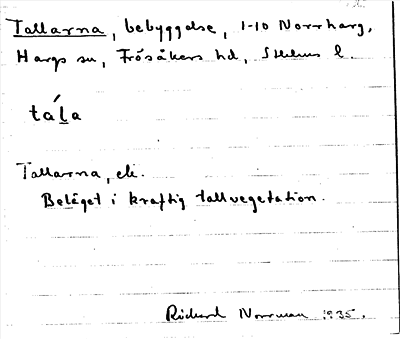 Tallarna, bebyggelse, 1-10 Norrharg,
Hargs sn, Frösåkers hd, Sthlms l.
táḷa
Tallarna, eli.
Beläget i kraftig tallvegetation.
Richard Norrman 1935.